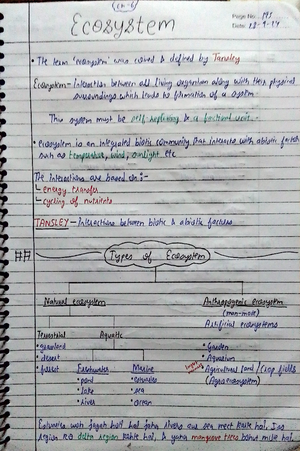 (Ch-6)
Page No:
Date: 13-9-24
Ecosystem
• The term 'ecosystem' was coined & defined by Tansley
Ecosystem - Interaction between all living organism along with their physical
surroundings which leads to formation of a system.
This system must be self replating & a functional unit.
• Ecosystem is an integrated biotic community that interacts with abiotic factors
such as temperature, wind, sunlight etc
The interactions are based on:-
energy transfer
cycling of nutrients
TANSLEY - Interactions between biotic & abiotic factors
Types of Ecosystem
Natural ecosystem
Anthropogenic ecosystem
(man-made)
Artificial ecosystems
Terrestrial
Aquatic
• grassland
• desert
• forest
Freshwater
• pond
• lake
• river
Marine
• estuaries
• sea
• ocean
• Garden
• Aquarium
• Agricultural land / Crop fields
(Agroecosystem)